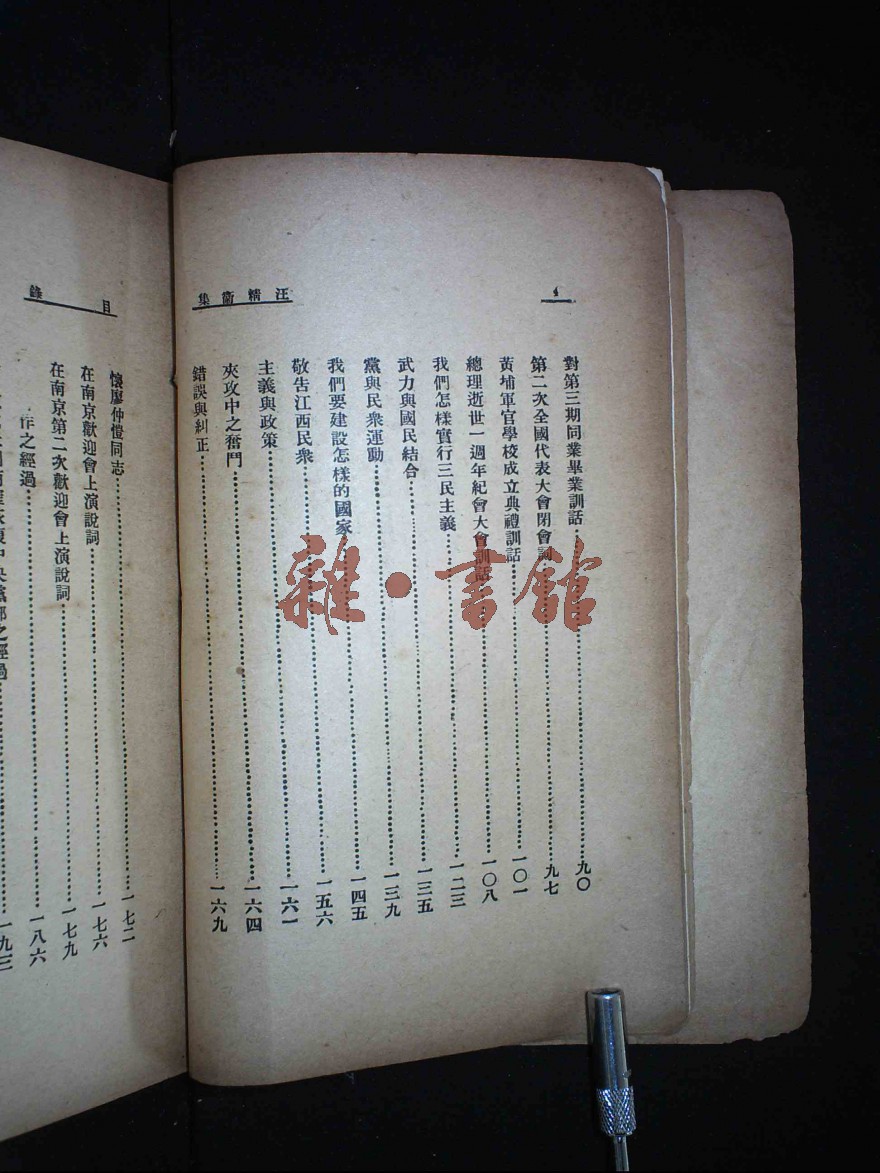 4
汪精衛集
對第三期同業畢業訓話……九〇
第二次全國代表大會閉會詞……九七
黃埔軍官學校成立典禮訓話……一〇一
總理逝世一週年紀會大會訓話……一〇八
我們怎樣實行三民主義……一二三
武力與國民結合……一三五
黨與民衆運動……一三九
我們要建設怎樣的國家……一四五
敬告江西民衆……一五六
主義與政策……一六一
夾攻中之奮鬥……一六四
錯誤與糾正……一六九
目錄
懷廖仲愷同志……一七二
在南京歡迎會上演說詞……一七六
在南京第二次歡迎會上演說詞……一七九
作之經過……一八六
中央黨部之經過……一九三
雜·書館